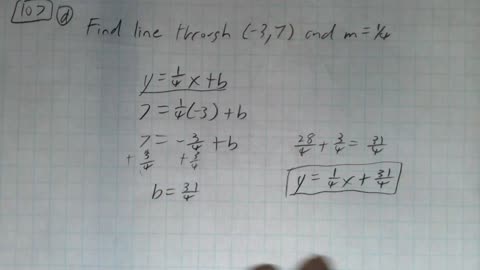 107 d Find line through (-3,7) and m=1/4
y = 1/4 x + b
7 = 1/4(-3) + b
7 = -3/4 + b
+3/4 +3/4
b = 31/4
28/4 + 3/4 = 31/4
y = 1/4 x + 31/4